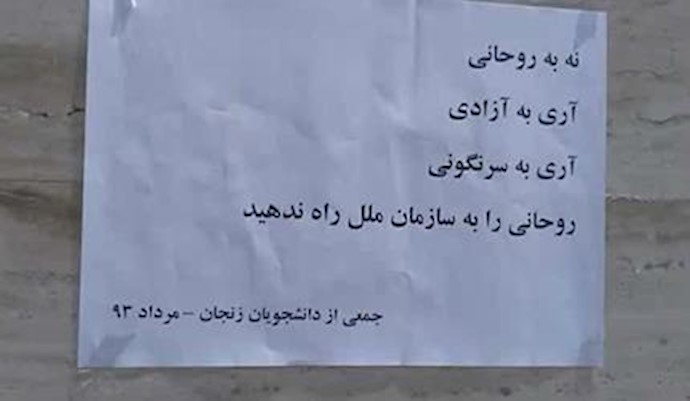 نه به روحانی
آری به آزادی
آری به سرنگونی
روحانی را به سازمان ملل راه ندهید
جمعی از دانشجویان زنجان – مرداد ۹۳